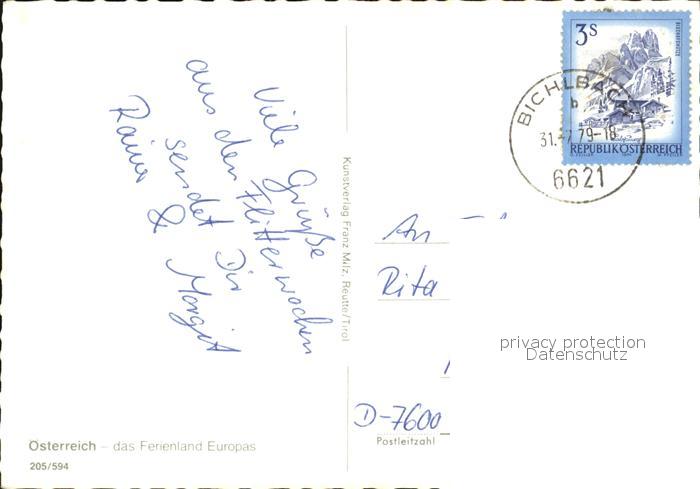 Viele Grüße
aus den Flitterwochen
sendet Dir
Rainer & Margit
Kunstverlag Franz Milz, Reutte/Tirol
3S
REPUBLIK ÖSTERREICH
BICHLBACH
b
31.-7.79-18
6621
An
Rita
privacy protection
Datenschutz
D-7600
Postleitzahl
Österreich – das Ferienland Europas
205/594